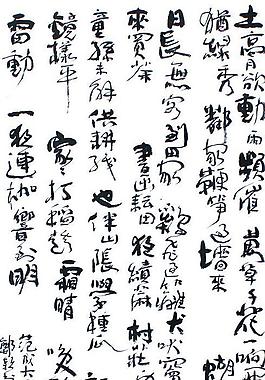 土膏欲動雨頻催 萬草千花一餉
猶綠秀 鄰家鞭筍過墻來 蝴
日長無客到田家 雞飛過籬犬吠竇
來買茶 晝出耘田夜績麻 村莊
童孫未解供耕織 也傍桑陰學種瓜
鏡樣平 家家打稻趁霜晴 笑
雷動 一夜連枷響到明 范成大